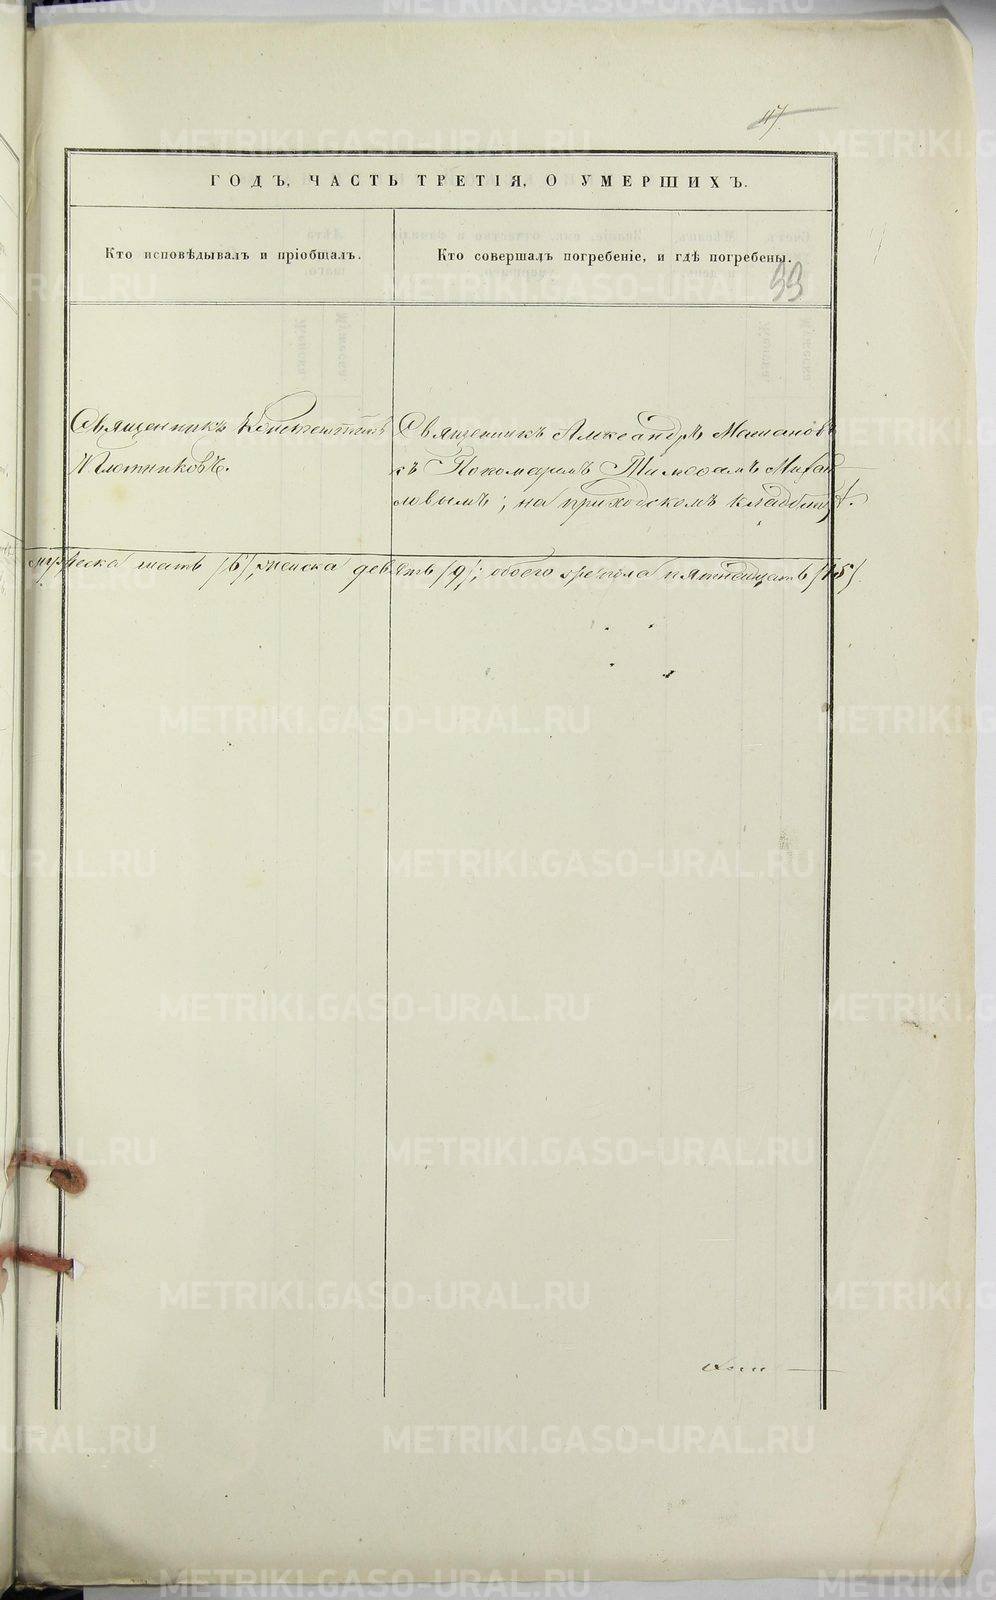 47
ГОДЪ, ЧАСТЬ ТРЕТІЯ, О УМЕРШИХЪ.
Кто исповѣдывалъ и пріобщалъ.
Кто совершалъ погребеніе, и гдѣ погребены.
99
Священникъ Константинъ
Плотниковъ.
Священникъ Александръ
съ Пономаремъ Тимофеемъ Михай
ловымъ; на приходскомъ кладбищѣ.
мужеска шесть /6/, женска девять /9/; обоего же пола пятнадцать /15/
METRIKI.GASO-URAL.RU